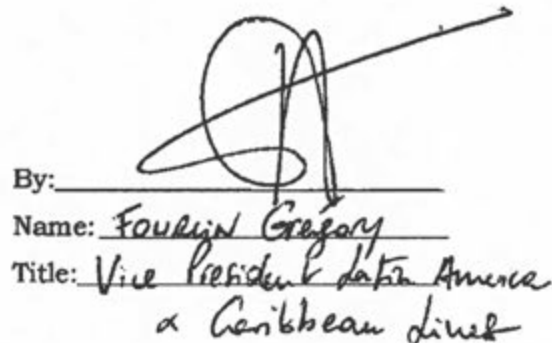 By:
Name: Fourcin Gregory
Title: Vice President Latin America
& Caribbean Lines